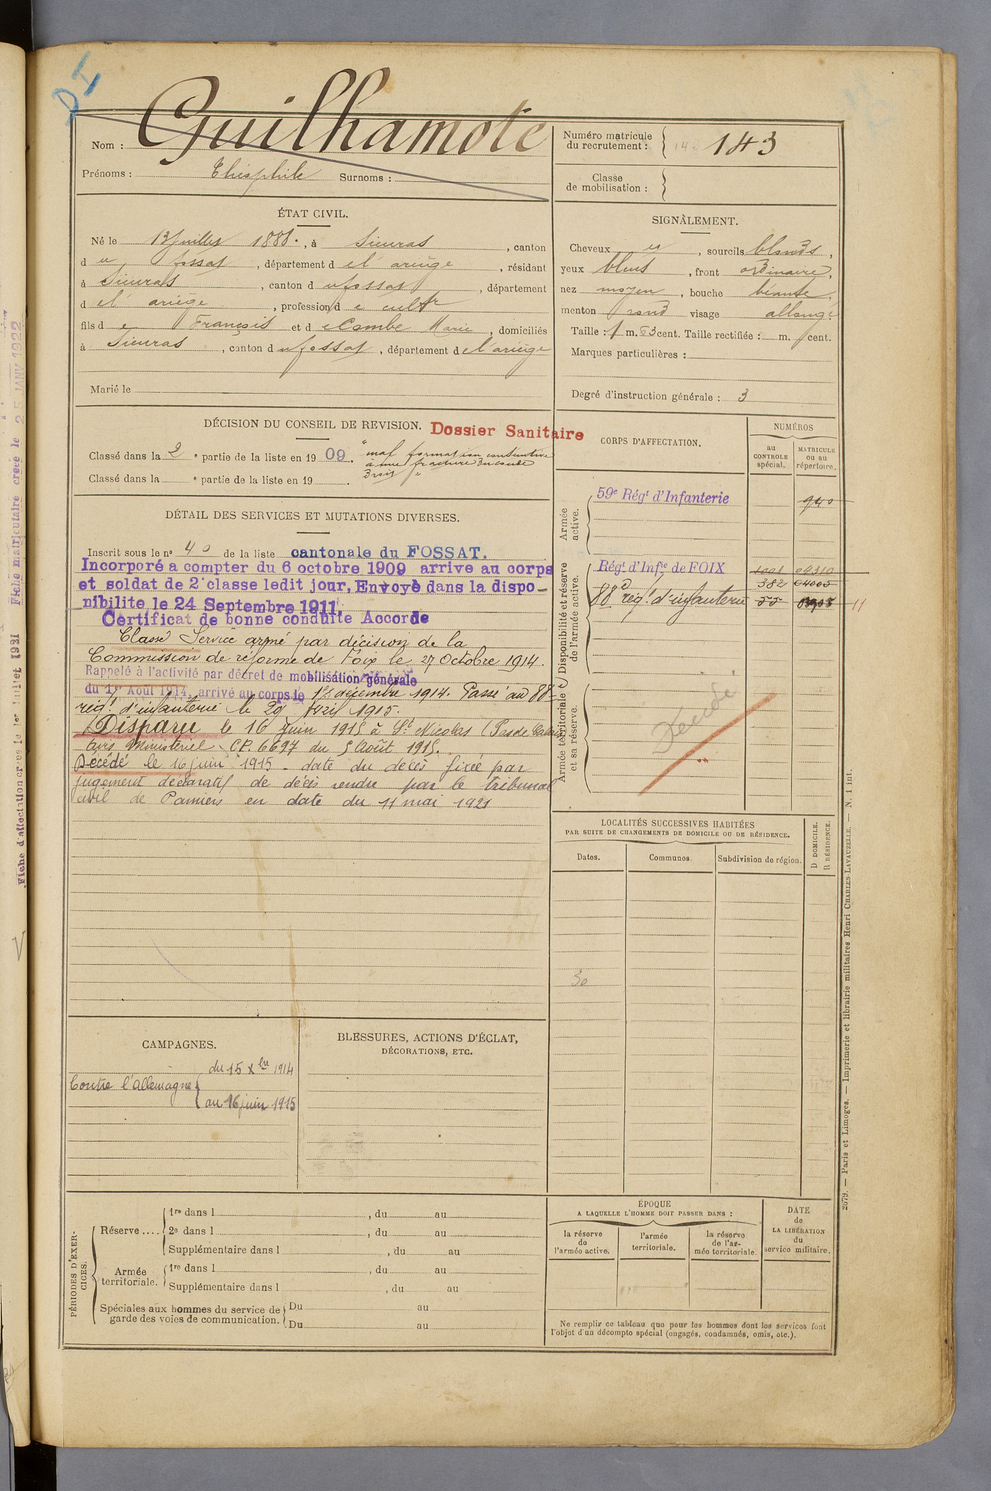 DI
Nom : Guilhamote
Prénoms : Théophile Surnoms :
Numéro matricule du recrutement : 14. 143
Classe de mobilisation :
ÉTAT CIVIL.
Né le 13 Juillet 1888, à Sieuras, canton
d u fossat, département d e l'ariège, résidant
à Sieuras, canton d u fossat, département
d e l'ariège, profession d e cultr
fils d e François et d e Combe Marie, domiciliés
à Sieuras, canton d u fossat, département d e l'ariège
Marié le
SIGNALEMENT.
Cheveux et, sourcils blonds,
yeux bleus, front ordinaire,
nez moyen, bouche béante,
menton rond visage allongé
Taille : 1 m. 53 cent. Taille rectifiée : m. cent.
Marques particulières :
Degré d'instruction générale : 3
DÉCISION DU CONSEIL DE REVISION. Dossier Sanitaire
Classé dans la 2e partie de la liste en 1909
mal formation consécutive
à une fracture du coude
droit
Classé dans la e partie de la liste en 19
DÉTAIL DES SERVICES ET MUTATIONS DIVERSES.
Inscrit sous le no 40 de la liste cantonale du FOSSAT.
Incorporé a compter du 6 octobre 1909 arrive au corps
et soldat de 2e classe ledit jour, Envoyé dans la dispo-
nibilite le 24 Septembre 1911,
Certificat de bonne conduite Accordé
Classé Service armé par décision de la
Commission de réforme de Foix le 27 Octobre 1914.
Rappelé à l'activité par décret de mobilisation générale
du 1er Août 1914, arrivé au corps le 15 décembre 1914. Passé au 88e
rég.t d'infanterie le 20 Avril 1915.
Disparu le 16 juin 1915 à St Nicolas (Pas de Calais)
avis Ministériel CP. 6697 du 5 Août 1915.
Décédé le 16 juin 1915. date du décès fixée par
jugement déclaratif de décès rendu par le tribunal
civil de Pamiers en date du 11 mai 1921
CORPS D'AFFECTATION.
NUMÉROS
au CONTROLE spécial.
MATRICULE ou au répertoire.
Armée active.
59e Régt d'Infanterie 940
Disponibilité et réserve de l'armée active.
Régt d'Infie de FOIX 1001 09310
382 04005
88e rég.t d'infanterie 11
Armée territoriale et sa réserve.
Décédé
LOCALITÉS SUCCESSIVES HABITÉES
PAR SUITE DE CHANGEMENTS DE DOMICILE OU DE RÉSIDENCE.
Dates.
Communes.
Subdivision de région.
D DOMICILE.
R RÉSIDENCE.
30
CAMPAGNES.
Contre l'allemagne
du 15 Xbre 1914
au 16 juin 1915
BLESSURES, ACTIONS D'ÉCLAT,
DÉCORATIONS, ETC.
PÉRIODES D'EXERCICES.
Réserve....
1re dans l , du au
2e dans l , du au
Supplémentaire dans l , du au
Armée territoriale.
1re dans l , du au
Supplémentaire dans l , du au
Spéciales aux hommes du service de garde des voies de communication.
Du au
Du au
ÉPOQUE
A LAQUELLE L'HOMME DOIT PASSER DANS :
la réserve de l'armée active.
l'armée territoriale.
la réserve de l'armée territoriale.
DATE de LA LIBÉRATION du service militaire.
Ne remplir ce tableau que pour les hommes dont les services font
l'objet d'un décompte spécial (engagés, condamnés, omis, etc.).
2679. — Paris et Limoges. — Imprimerie et librairie militaires Henri CHARLES-LAVAUZELLE. — N. 1 int.